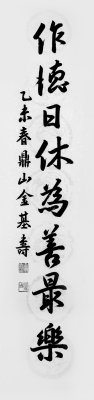 作德日休為善最樂
乙未春鼎山金基壽